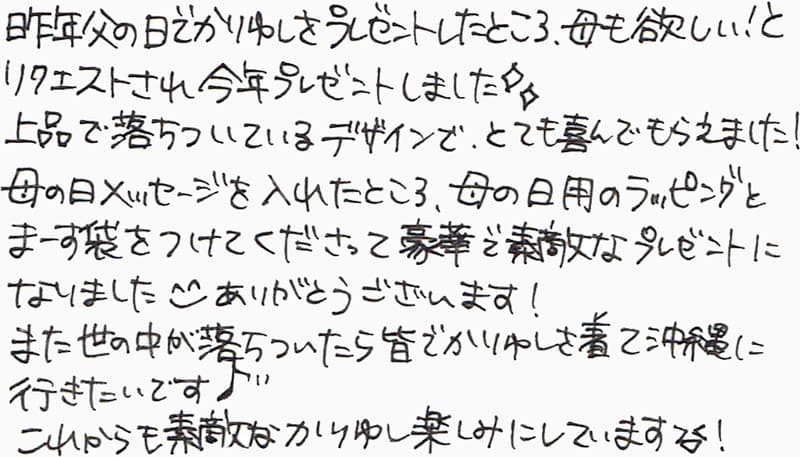 昨年父の日でかりゆしをプレゼントしたところ、母も欲しい!と
リクエストされ今年プレゼントしました✧✧
上品で落ちついているデザインで、とても喜んでもらえました!
母の日メッセージを入れたところ、母の日用のラッピングと
まーす袋をつけてくださって豪華で素敵なプレゼントに
なりました ありがとうございます!
また世の中が落ちついたら皆でかりゆしを着て沖縄に
行きたいです♪
これからも素敵なかりゆし楽しみにしています!